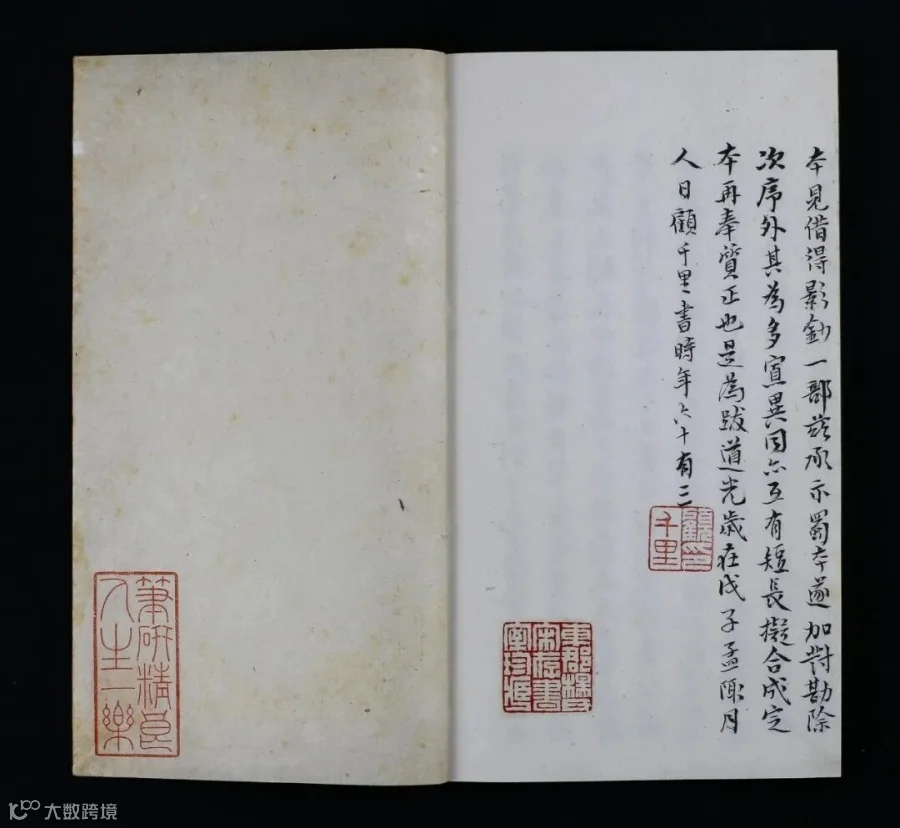 本見借得影鈔一部茲承示蜀本遂加對勘除
次序外其為多寡異同亦互有短長擬合成定
本再奉質正也是為跋道光歲在戊子孟陬月
人日顧千里書時年六十有三
顧印
千里
東郡楊氏
宋存書
室珍藏
筆研精良
人生一樂
大数跨境